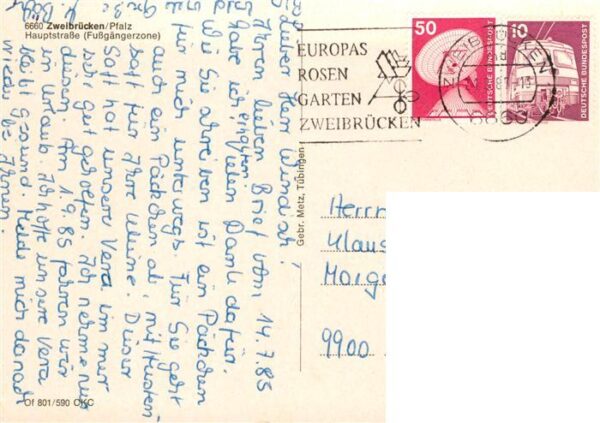 6660 Zweibrücken/Pfalz
Hauptstraße (Fußgängerzone)
Lieber Herr Windisch!
Ihren lieben Brief vom 14.7.85
habe ich erhalten vielen Dank dafür.
Wie Sie schreiben ist ein Päckchen
für mich unterwegs. Für Sie geht
auch ein Päckchen ab, mit Husten-
saft für Ihre Kleine. Dieser
Saft hat unsere Vera immer
sehr gut geholfen. Ich nehme nur
diesen. Am 1.9.85 fahren wir
in Urlaub. Ich hoffe unsere Vera
bleibt gesund. Melde mich danach
wieder bei Ihnen.
Of 801/590 CKC
Gebr. Metz, Tübingen
EUROPAS
ROSEN
GARTEN
ZWEIBRÜCKEN
ZWEIBRÜCKEN
6660
50
DEUTSCHE BUNDESPOST
10
DEUTSCHE BUNDESPOST
Herrn
Klaus
Morge
9900